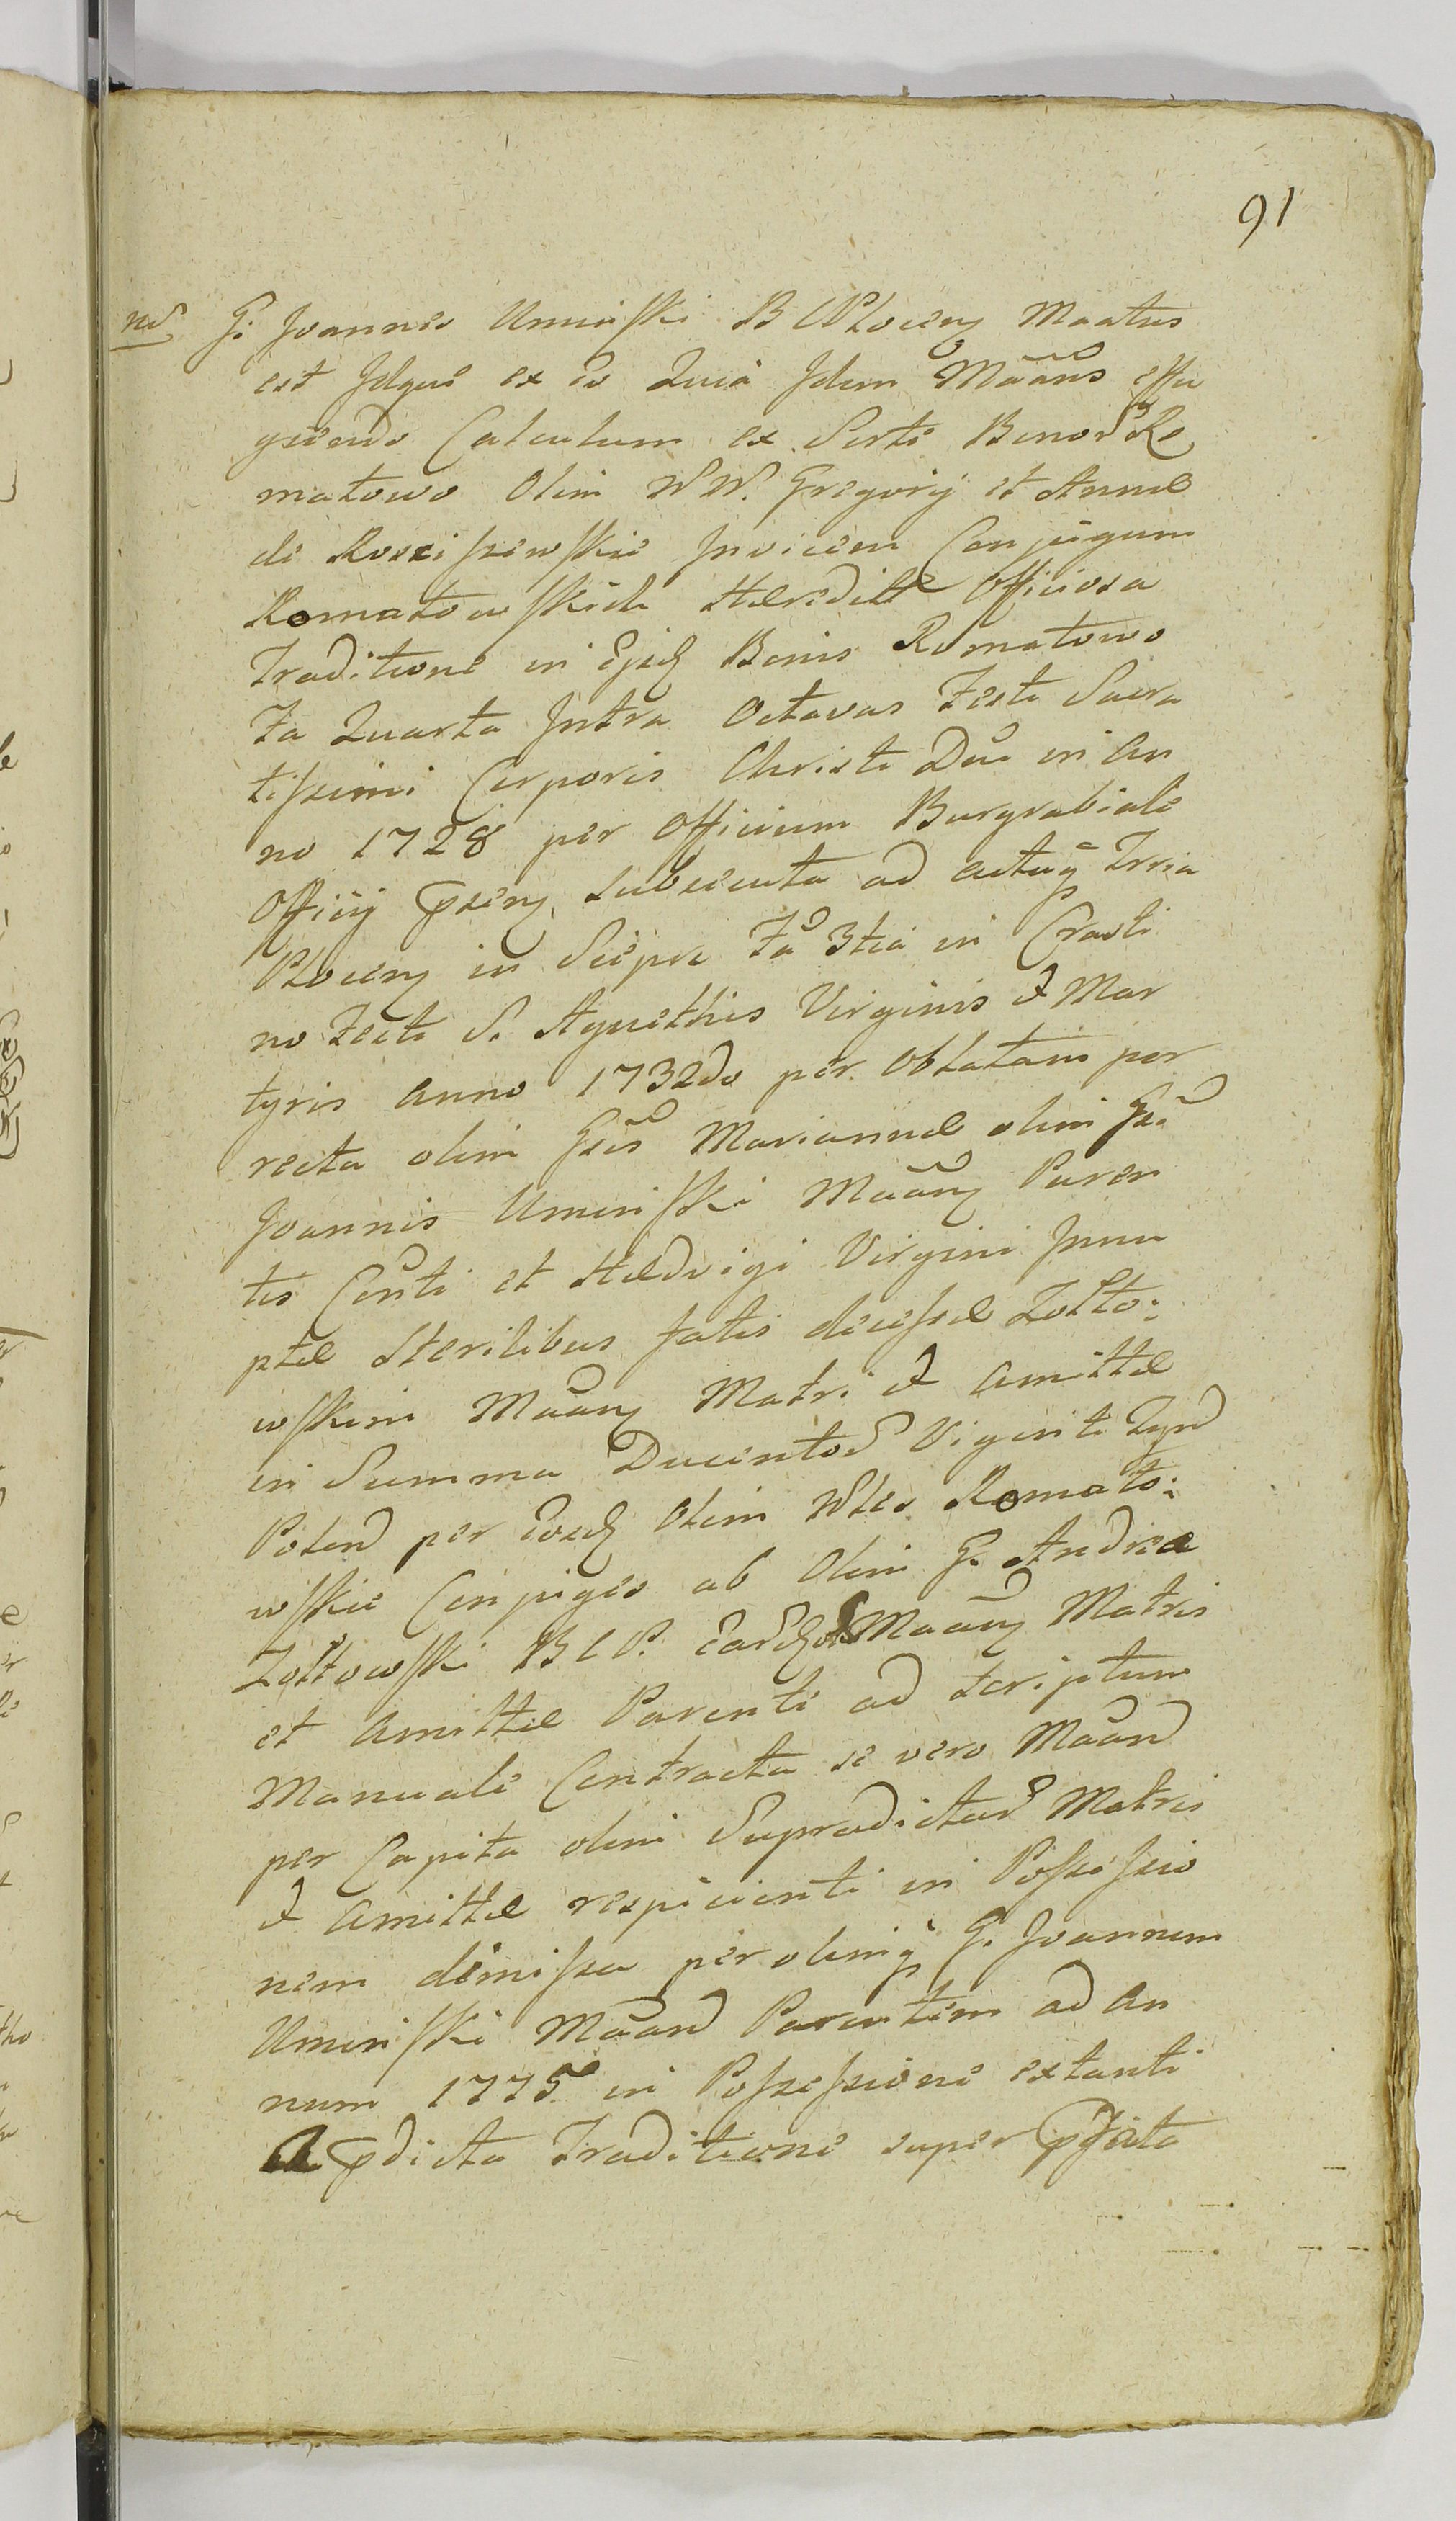 91
nd G: Joannes Uminſki B C Plocens Maatus
est Idque ex eo Quia Idem Māāns effu
giendo Calculum ex Sorte Bonor Ro
matowo Olim WW. Gregorij et Annæ
de Rosciſzewſkie Invicem Conjugum
Romatowſkich Hæredite Officiosa
Traditione in Ejsd Bonis Romatowo
Fa Quarta Intra Octavas Festi Sacra
tiſsimi Corporis Christi Dni in An
no 1728 per Officium Burgrabiale
Officij psens subsecuta ad actaq Trria
Plocens in Sierpc Fa 3tia in Crasti
no Festi S. Agnethis Virginis & Mar
tyris anno 1732do per Oblatam por
recta olim Gsis Mariannæ olim Gsi
Joannis Uminſki Māāns Paren
tis Consti et Hædvigi Virgini Innu
ptæ Sterilibus fatis deceſsæ Zołto:
wſkim Māāns Matri & Amittæ
in Summa Ducentor Viginti Zynd
Polend per Eosd Olim Wles Romato:
wſkie Conjuges ab Olim G. Andrea
Zołtowſki B C P. Māāns Matris
et Amittæ Parenti ad scriptum
Manuale Contracta se vero Māānd
per Capita olim Supradictar Matris
& Amittæ respicienti in Poſseſsio
nem dimiſsa per olimq G. Joannem
Uminſki Māānd Parentem ad an
num 1775 in Poſseſsione extanti
A pdicta Traditione super pfata